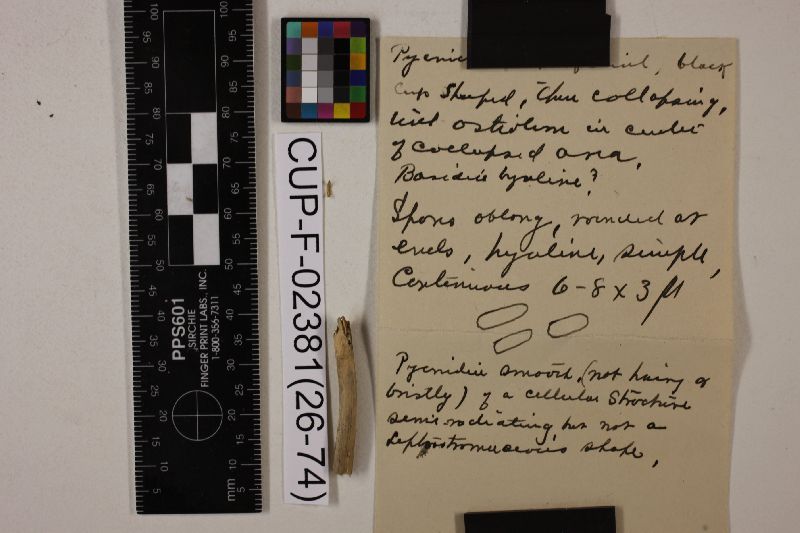 100
95
90
85
80
75
70
65
60
55
50
45
40
35
30
25
20
15
10
5
mm
100
90
80
70
60
50
40
30
20
10
PPS601
SIRCHIE
FINGER PRINT LABS, INC.
1-800-356-7311
CUP-F-02381(26-74)
black
cup shaped, then collapsing,
with ostiolum in center
of collapsed area.
Basidia hyaline?
Spores oblong, rounded at
ends, hyaline, simple,
Continuous 6-8 x 3 µ
Pycnidia smooth, (not hairy or
bristly) of a cellular structure
semi-radiating but not a
Leptostromaceous shape,